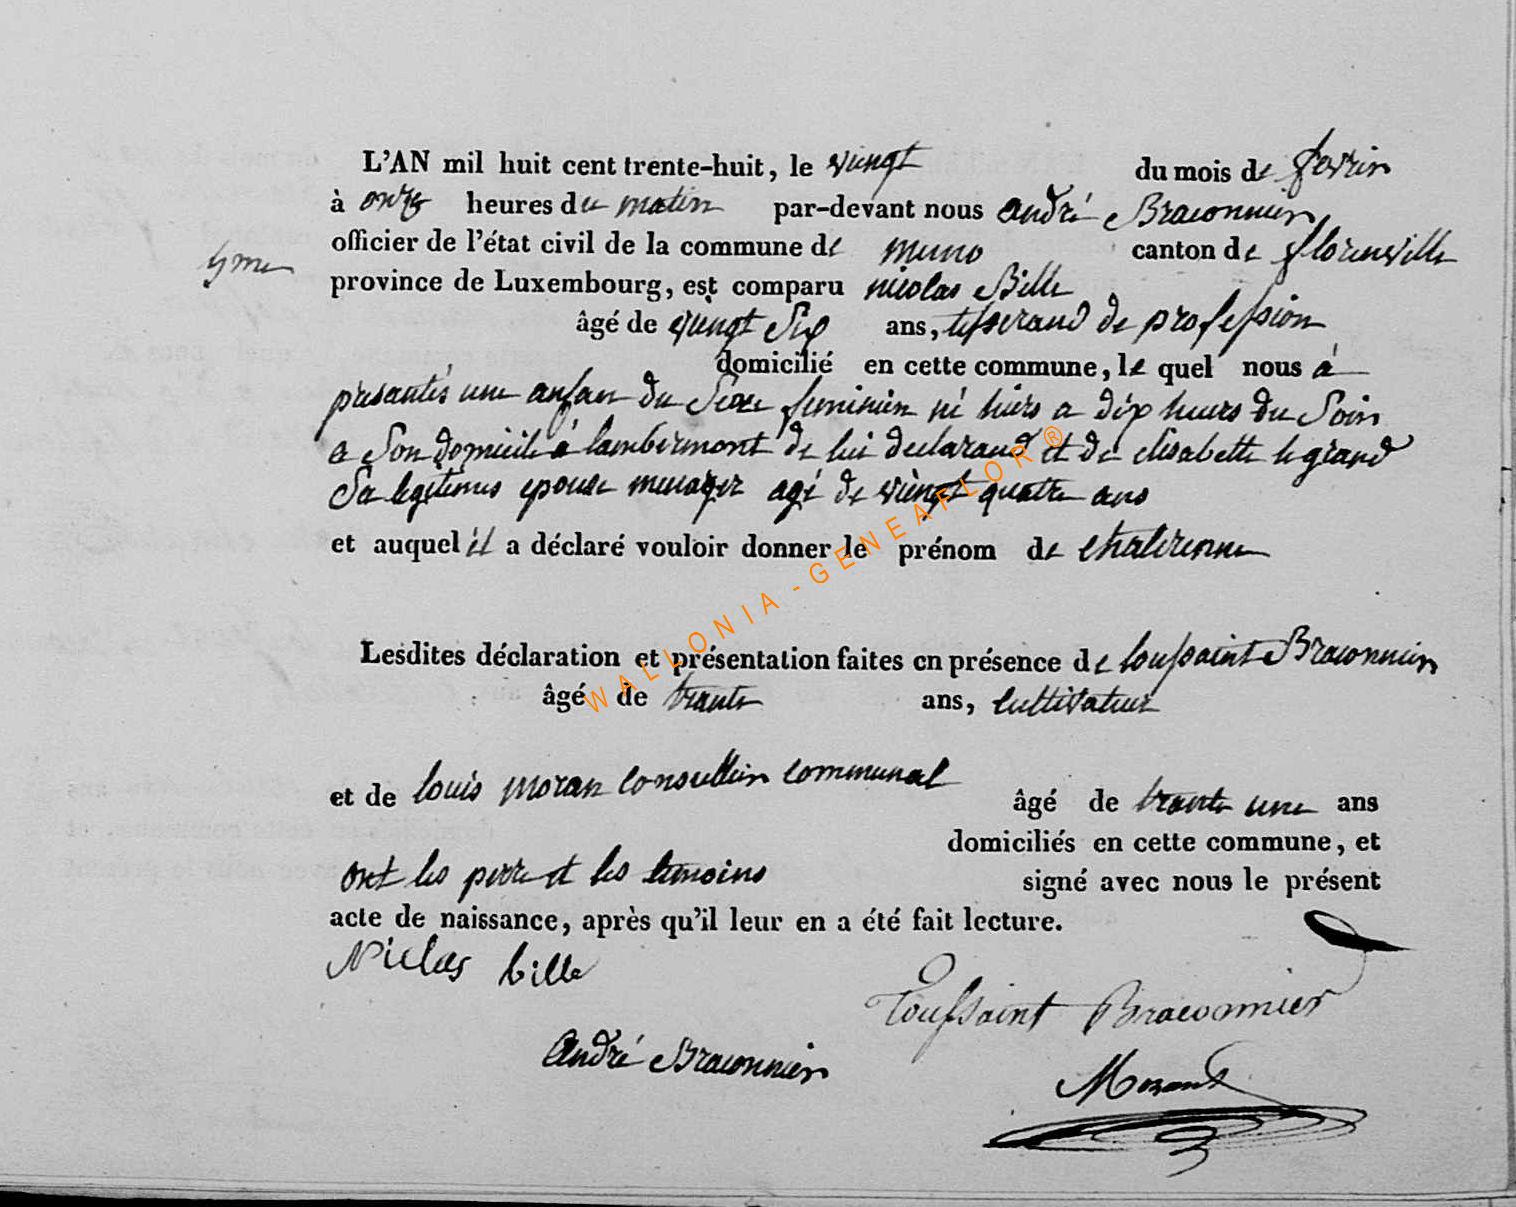 L'AN mil huit cent trente-huit, le vingt du mois de fevrier
à onze heures du matin par-devant nous andré Braconnier
officier de l'état civil de la commune de muno canton de florenville
province de Luxembourg, est comparu nicolas Bille
âgé de vingt Six ans, tisserand de profession
domicilié en cette commune, le quel nous à
presantés une anfan du Sexe feminin né hiers a dix heurs du Soir
a Son domicile à lambermont de lui declarand et de elisabette legrand
Sa legitimes epouse menager agé de vingt quatre ans
et auquel il a déclaré vouloir donner le prénom de
Lesdites déclaration et présentation faites en présence de toussaint Braconnier
âgé de trante ans, cultivateur
et de louis moran conseillier communal
âgé de trante une ans
domiciliés en cette commune, et
ont les perre et les temoins signé avec nous le présent
acte de naissance, après qu'il leur en a été fait lecture.
Nicolas bille
Toussaint Braconnier
andré Braconnier
Morant
WALLONIA - GENEAFLOR ®